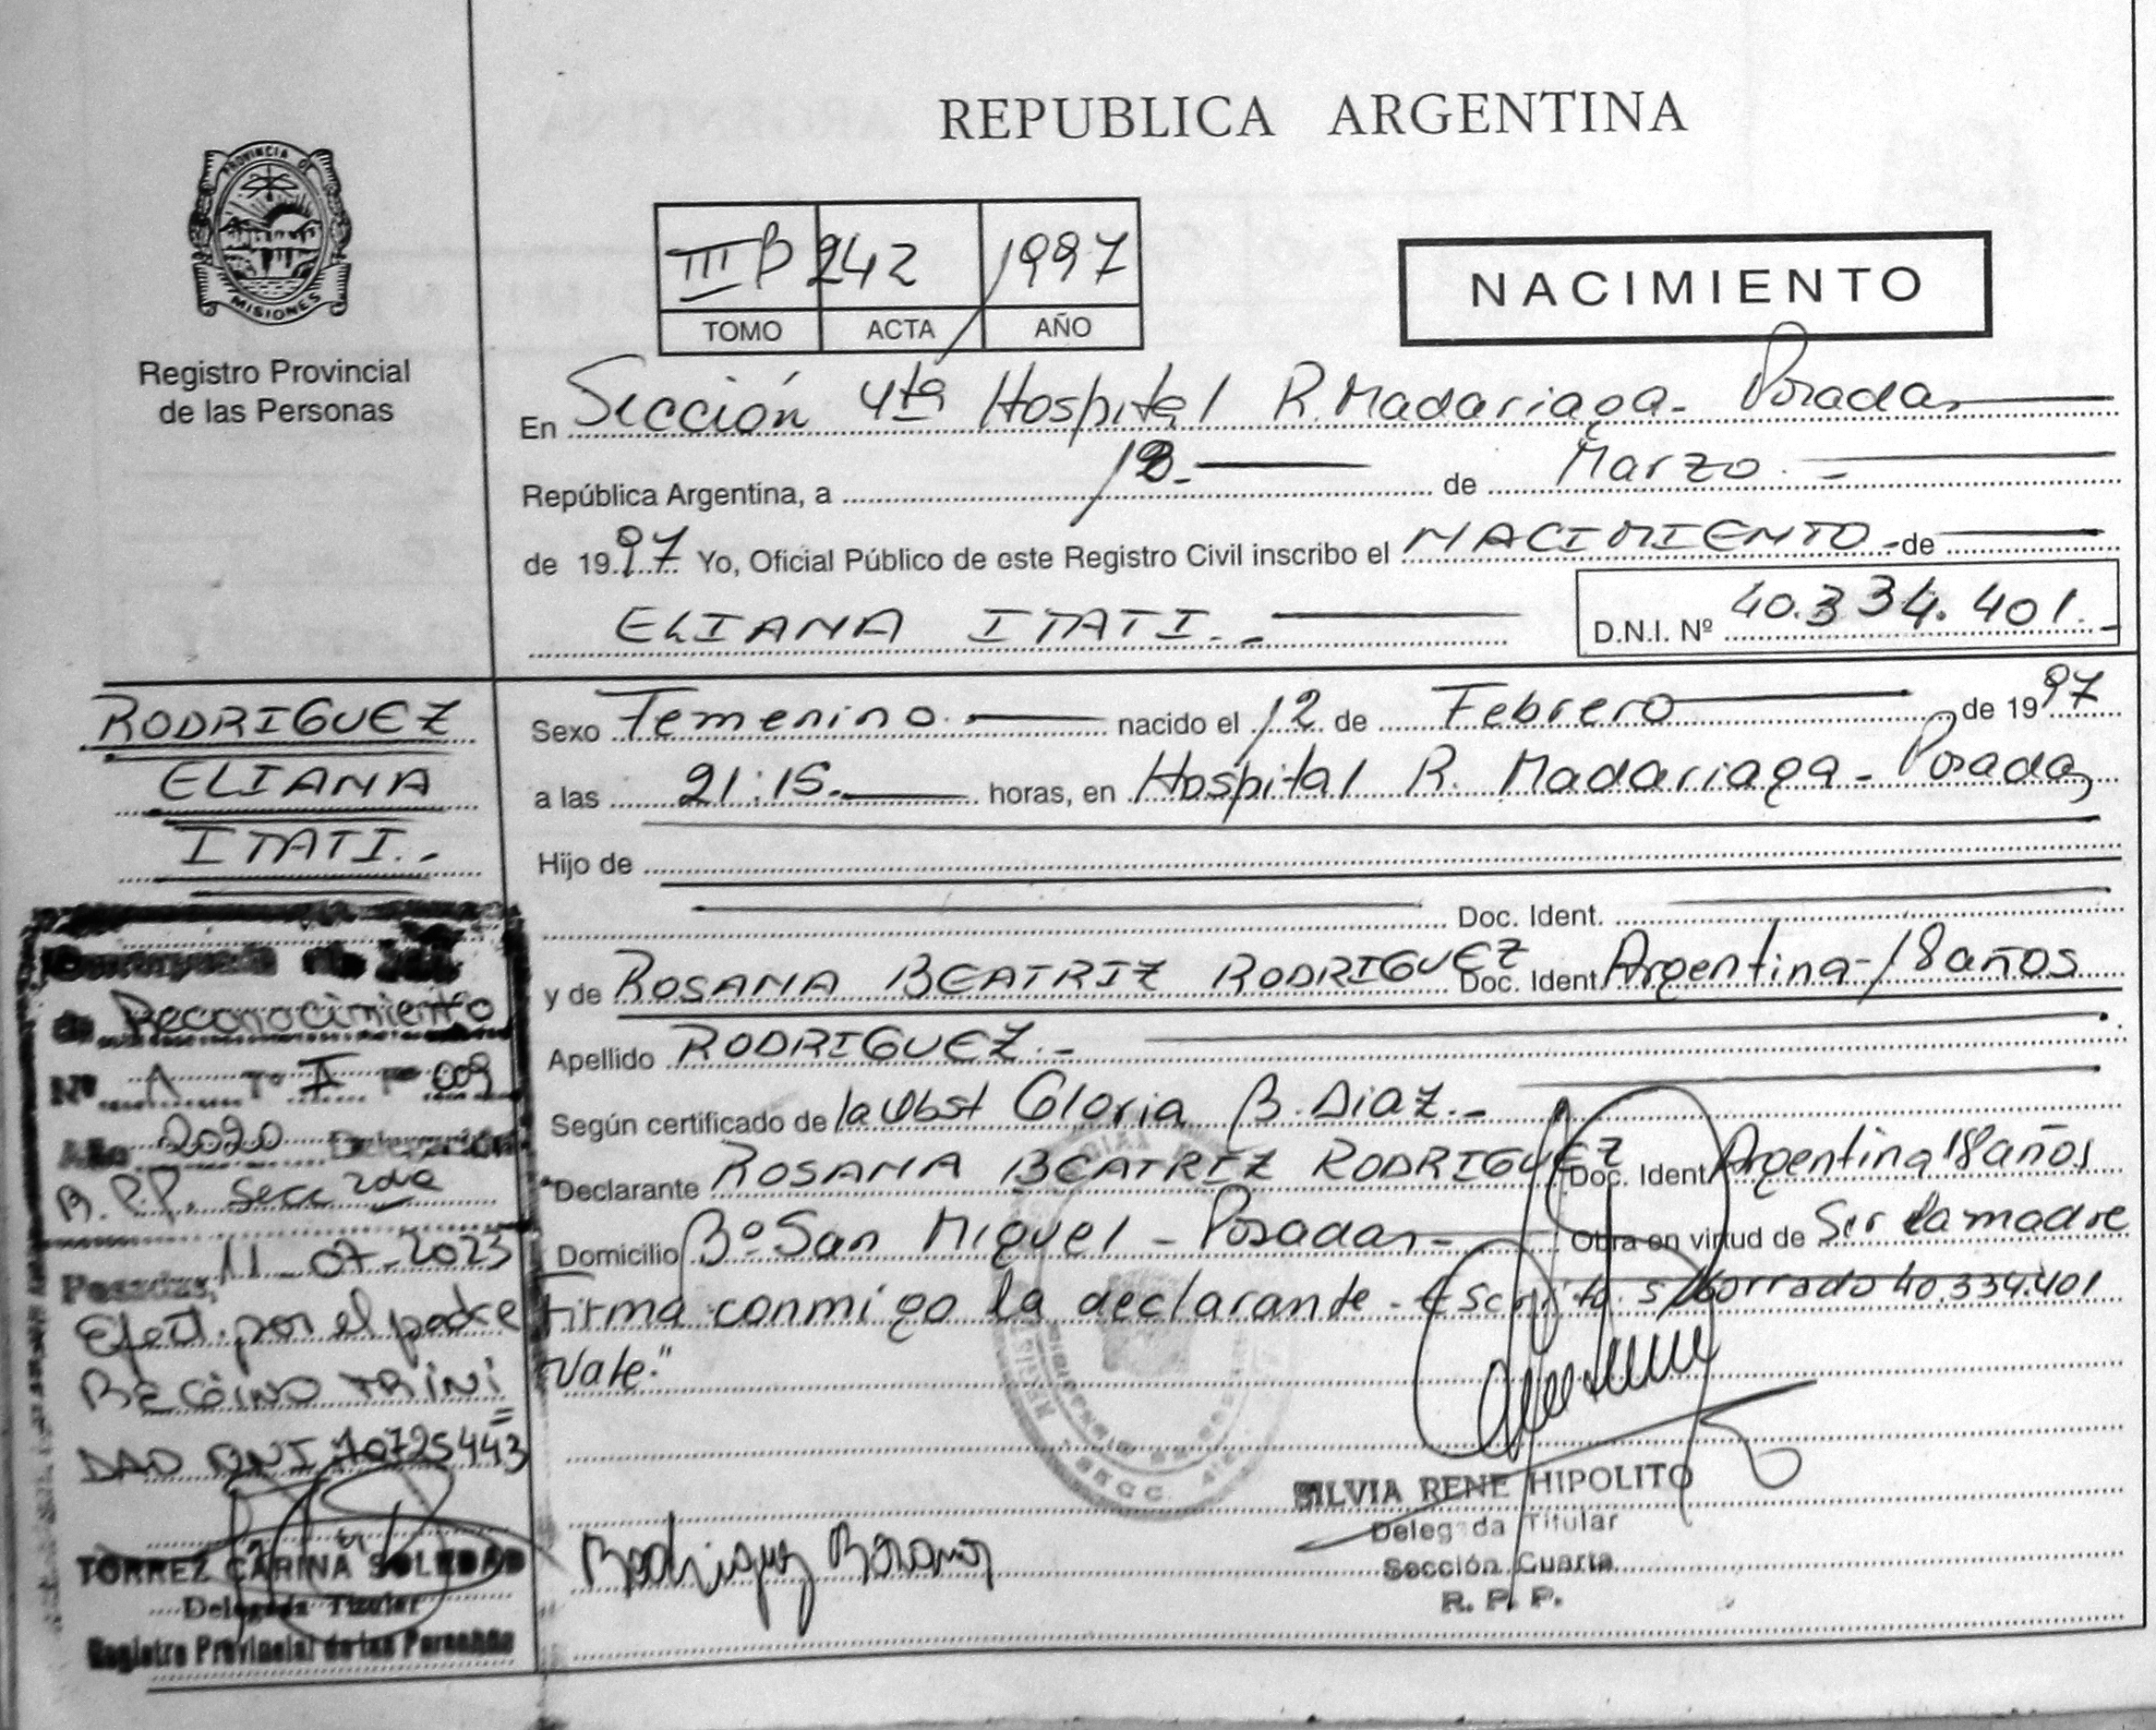 REPUBLICA ARGENTINA
PROVINCIA DE
MISIONES
Registro Provincial
de las Personas
III B 242 1997
TOMO ACTA AÑO
NACIMIENTO
En Sección 4ta Hospital R. Madariaga - Posadas
República Argentina, a de Marzo.-
de 1997 Yo, Oficial Público de este Registro Civil inscribo el NACIMIENTO - de
ELIANA ITATI.-
D.N.I. Nº 40.334.401.-
RODRIGUEZ
ELIANA
ITATI.-
Sexo Femenino.- nacido el 12 de Febrero de 1997
a las 21:15.- horas, en Hospital R. Madariaga - Posadas
Hijo de
Doc. Ident.
y de ROSANA BEATRIZ RODRIGUEZ Doc. Ident. Argentina - 18 años
Apellido RODRIGUEZ.-
Según certificado de la Obst Gloria B. Diaz.-
"Declarante ROSANA BEATRIZ RODRIGUEZ Doc. Ident. Argentina 18 años
Domicilio Bº San Miguel - Posadas - Obra en virtud de Ser la madre
Firma conmigo la declarante - Escrito s/borrado 40.334.401
Vale."
de Reconocimiento
Nº 1 Tº I Fº 009
Año 2020 Delegación
R.P.P. Secc 2da
Posadas, 11-07-2023
Efect. por el padre
TRINI
DAD DNI
TORREZ CARINA SOLEDAD
Delegada Titular
Registro Provincial de las Personas
Rodriguez Rosana
SILVIA RENE HIPOLITO
Delegada Titular
Sección Cuarta
R. P. P.